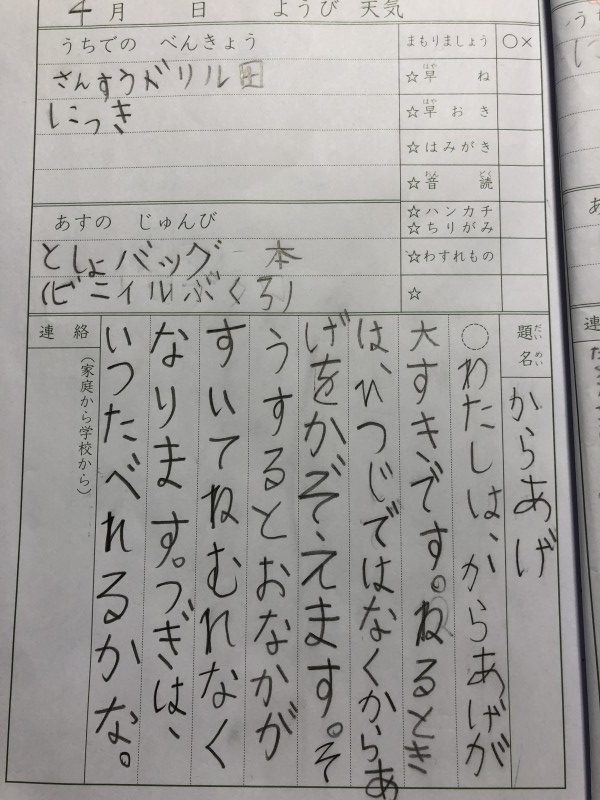 4月　日　ようび　天気
うちでの　べんきょう
さんすうドリル田
にっき
まもりましょう　○×
☆早ね
はや
☆早おき
はや
☆はみがき
☆音読
おんどく
☆ハンカチ
☆ちりがみ
☆わすれもの
☆
あすの　じゅんび
としょバッグ　本
(ビニイルぶくろ)
題名
だいめい
からあげ
○わたしは、からあげが
大すきです。ねるとき
は、ひつじではなくからあ
げをかぞえます。そ
うするとおなかが
すいてねむれなく
なります。つぎは、
いつたべれるかな。
連絡
（家庭から学校から）